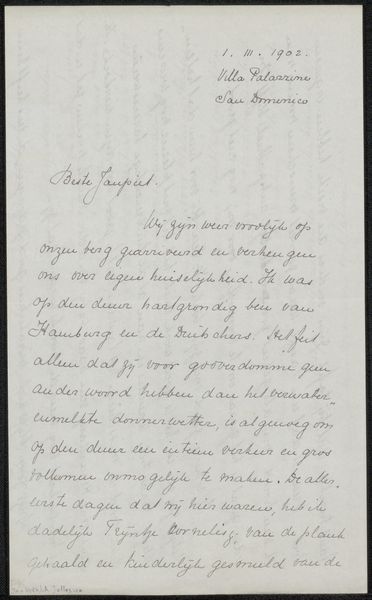 1. III. 1902.
Villa Palazzino
San Domenico
Beste Janpiet.
Wij zijn weer vroolijk op
onzen berg gearriveerd en verheugen
ons over eigen huiselijkheid. Ik was
op den duur hartgrondig ben van
Hamburg en de Duitschers. Het feit
alleen dat zij voor godverdomme geen
ander woord hebben dan het verwater-
enmelkte donnerwetter, is al genoeg om
op den duur een intiem verkeer en gros
volkomen onmogelijk te maken. De aller-
eerste dagen dat wij hier waren, heb ik
dadelijk Trijntje Cornelisz. van de plank
gehaald en kinderlijk gesmuld van de